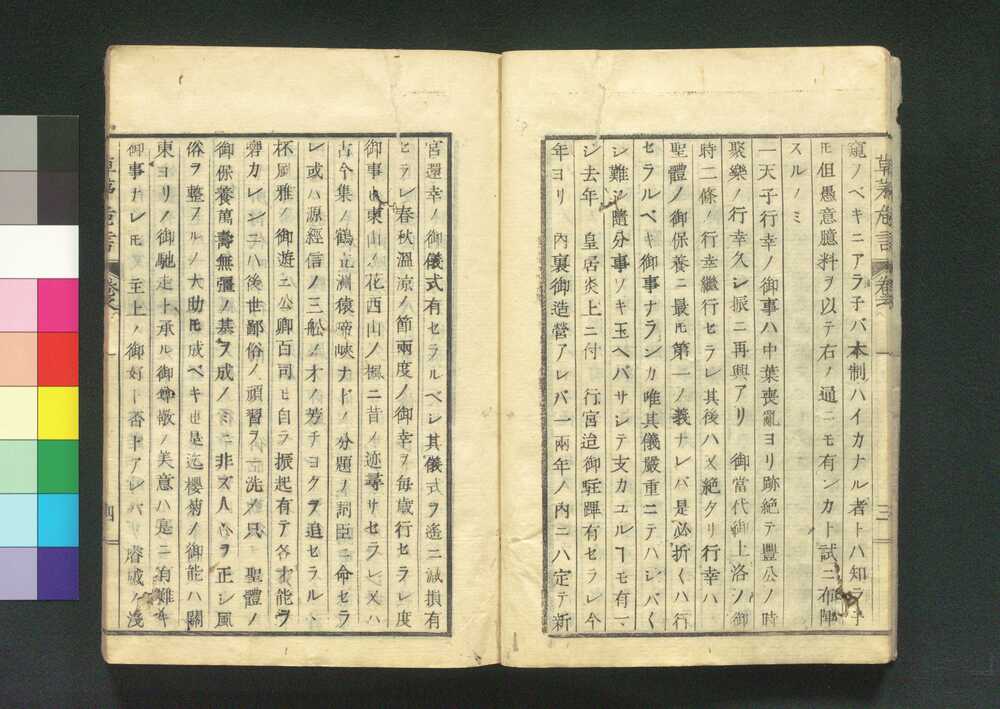 窺ノベキニアラ子バ本制ハイカナル者トハ知ラ子
𪜈但愚意臆料ヲ以テ右ノ通ニモ有ンカト試ニ布陣
スルノミ
一天子行幸ノ御事ハ中葉喪亂ヨリ跡絶テ豐公ノ時
聚樂ノ行幸久シ振ニ再興アリ 御當代御上洛ノ御
時二條ノ行幸繼行セラレ其後ハ又絶タリ行幸ハ
聖體ノ御保養ニ最𪜈第一ノ義ナレバ是必折〱ハ行
セラルベキ御事ナランカ唯其儀嚴重ニテハシバ〱
シ難シ隨分事ソギ玉ヘバサシテ支カユルヿモ有ニ
シ去年 皇居炎上ニ付 行宮迨御駐蹕有セラレ今
年ヨリ 內裏御造營アレバ一兩年ノ內ニハ定テ新
草茅危言 卷之 三
宮還幸ノ御儀式有セラルベシ其儀式ヲ遙ニ減損有
ヒテレ春秋溫涼ノ節兩度ノ御幸ヲ每歲行セラレ度
御事也東山ノ花西山ノ楓ニ昔ノ迹尋サセラレ又ハ
古今集ノ鶴立洲猿啼峽ナドノ分題ノ詞臣ニ命セラ
レ或ハ源經信ノ三舩ノ才ノ芳チヨクヲ追セラル、
杯風雅ノ御遊ニ公卿百司モ自ラ振起有テ各才能ヲ
磨カレンニハ後世鄙俗ノ頑習ヲ一洗メ只 聖體ノ
御保養萬壽無彊ノ基ヲ成ノミニ非ズ人心ヲ正シ風
俗ヲ整フルノ大助𪜈成ベキ也是迄櫻菊ノ御能ハ關
東ヨリノ御馳走ト承ル御尊敬ノ美意ハ是ニ有難キ
御事ナレ𪜈 至上ノ御好ト否トアレバ 睿慮ノ淺
草茅危言 卷之 四